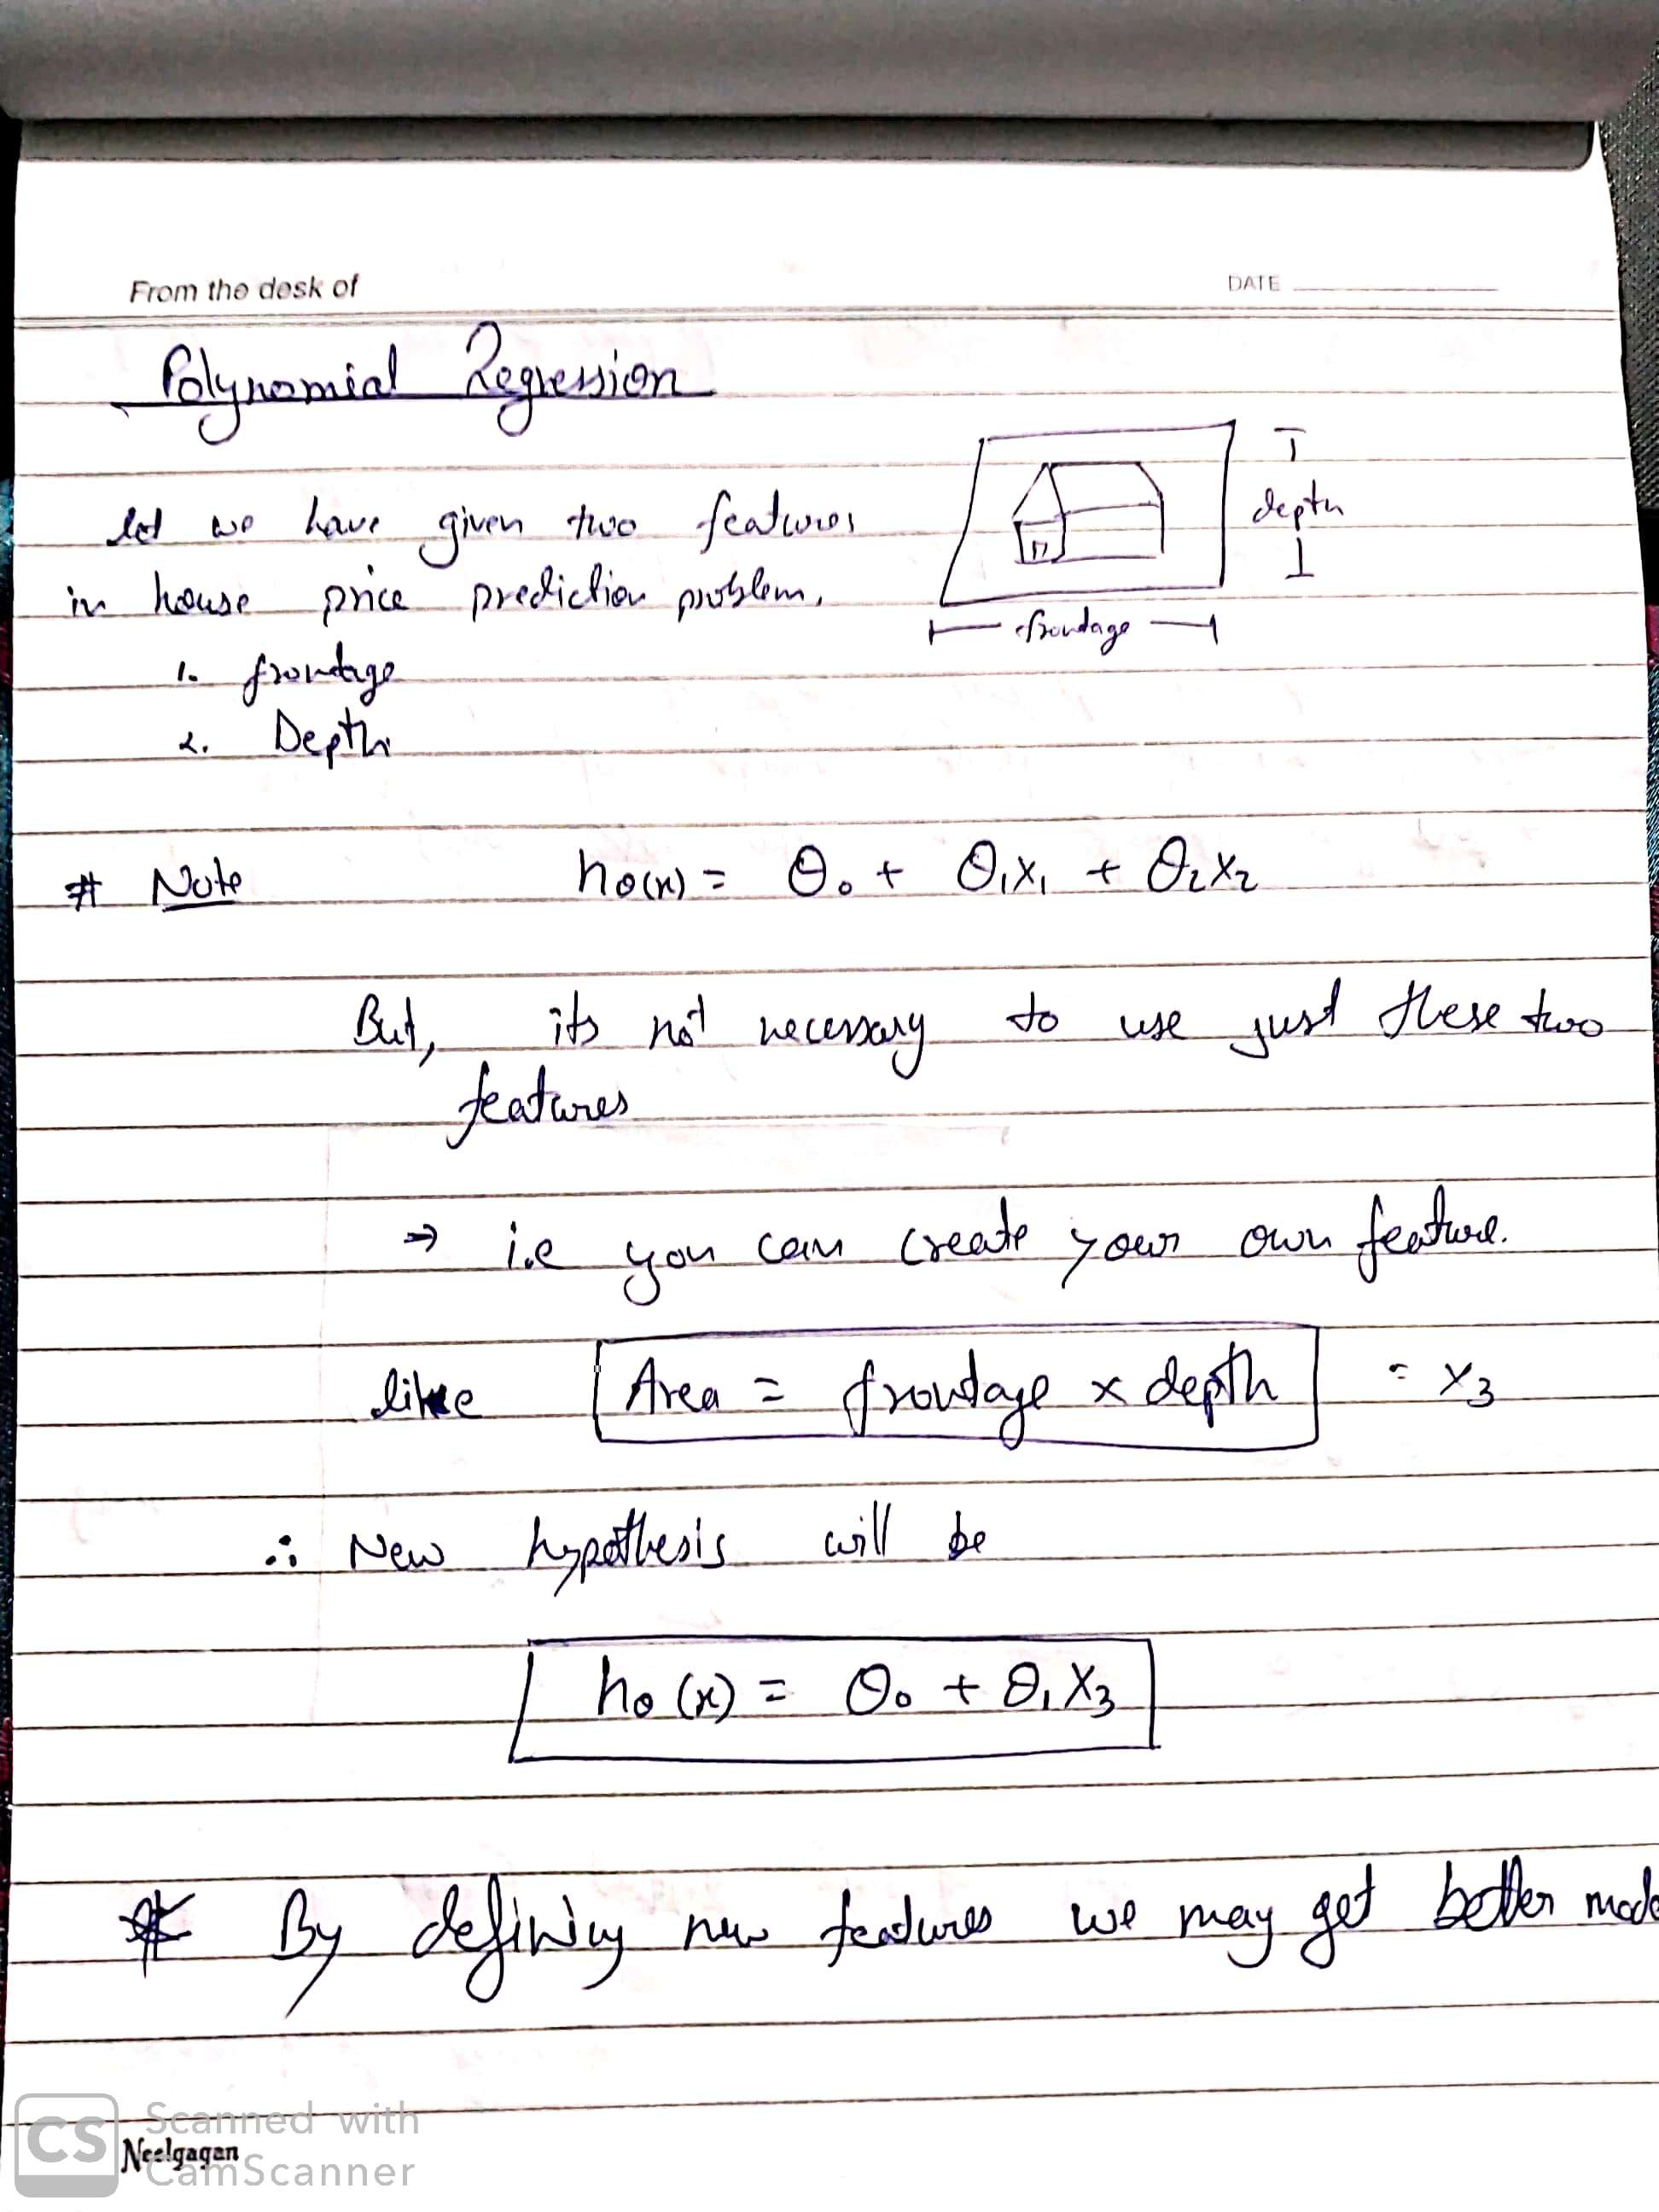 From the desk of
DATE
Polynomial Regression
let we have given two features
in house price prediction problem,
1. frontage
2. Depth
depth
frontage
# Note hθ(x) = θ₀ + θ₁x₁ + θ₂x₂
But, its not necessary to use just these two
features
⇒ i.e you can create your own feature.
like Area = frontage x depth = x₃
∴ New hypothesis will be
hθ(x) = θ₀ + θ₁x₃
# By defining new features we may get better mode
CS Scanned with
CamScanner
Neelgagan